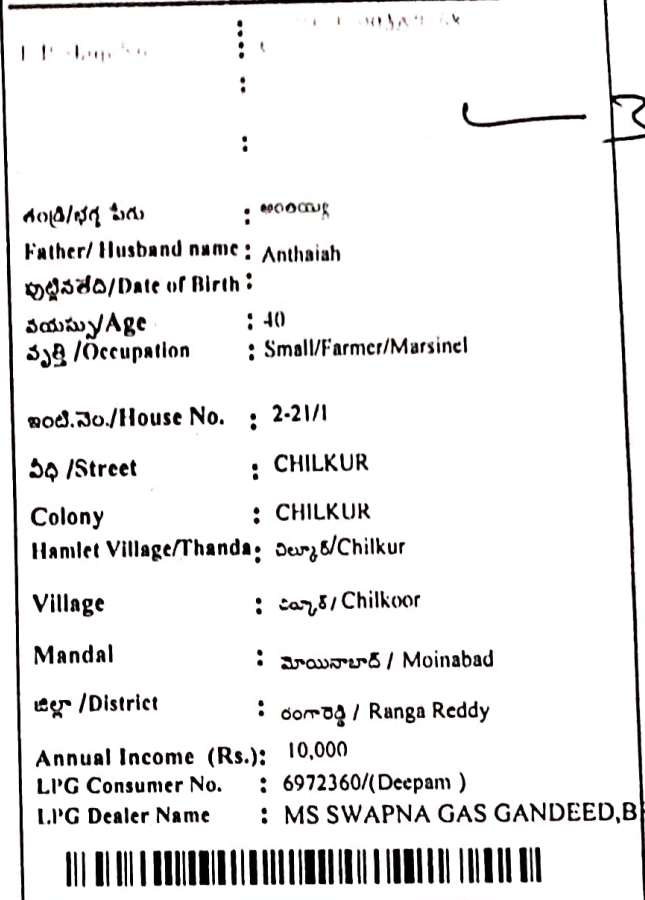 తండ్రి/భర్త పేరు : అంతయ్య
Father/ Husband name : Anthaiah
పుట్టినతేది/Date of Birth :
వయస్సు/Age : 40
వృత్తి /Occupation : Small/Farmer/Marsinel
ఇంటి.నెం./House No. : 2-21/1
వీధి /Street : CHILKUR
Colony : CHILKUR
Hamlet Village/Thanda : చిల్కూర్/Chilkur
Village : / Chilkoor
Mandal : మొయినాబాద్ / Moinabad
జిల్లా /District : రంగారెడ్డి / Ranga Reddy
Annual Income (Rs.) : 10,000
LPG Consumer No. : 6972360/(Deepam )
LPG Dealer Name : MS SWAPNA GAS GANDEED,B